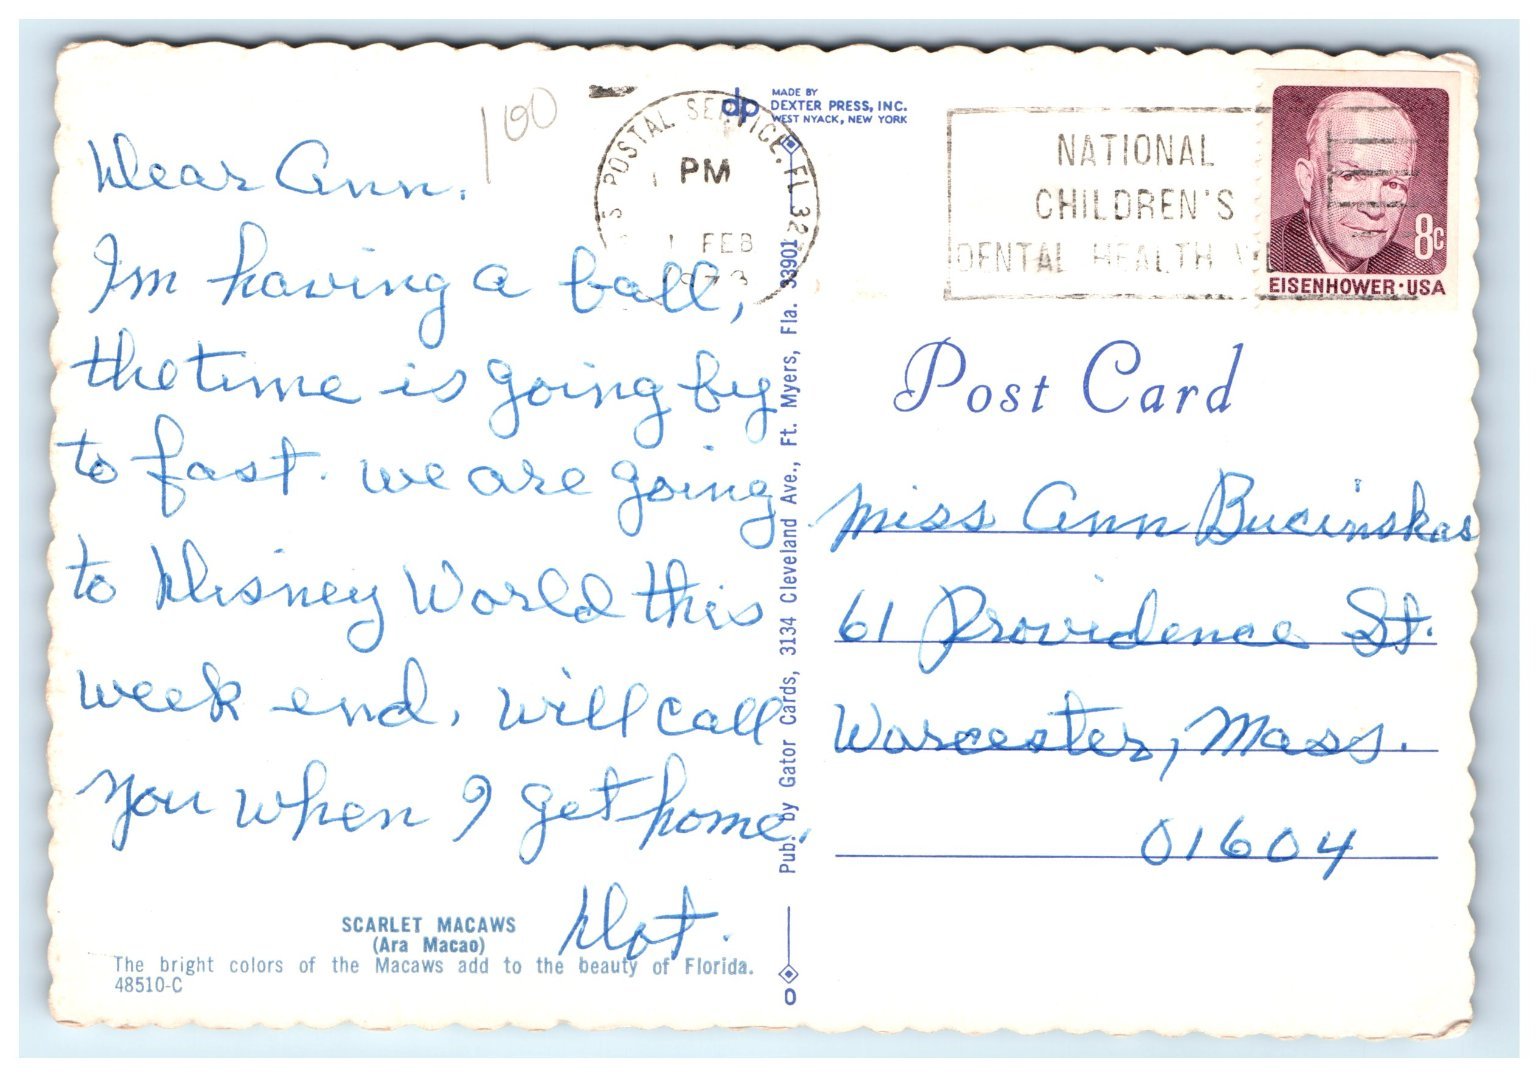 100
Dear Ann.
Im having a ball,
the time is going by
to fast. we are going
to Disney World this
week end. will call
you when I get home.
Dot.
SCARLET MACAWS
(Ara Macao)
The bright colors of the Macaws add to the beauty of Florida.
48510-C
POSTAL SERVICE, FL
PM
1 FEB
1973
dp
MADE BY
DEXTER PRESS, INC.
WEST NYACK, NEW YORK
Pub. by Gator Cards, 3134 Cleveland Ave., Ft. Myers, Fla. 33901
0
NATIONAL
CHILDREN'S
DENTAL HEALTH
8c
EISENHOWER·USA
Post Card
Miss Ann Bucinskas
61 Providence St.
Worcester, Mass.
01604